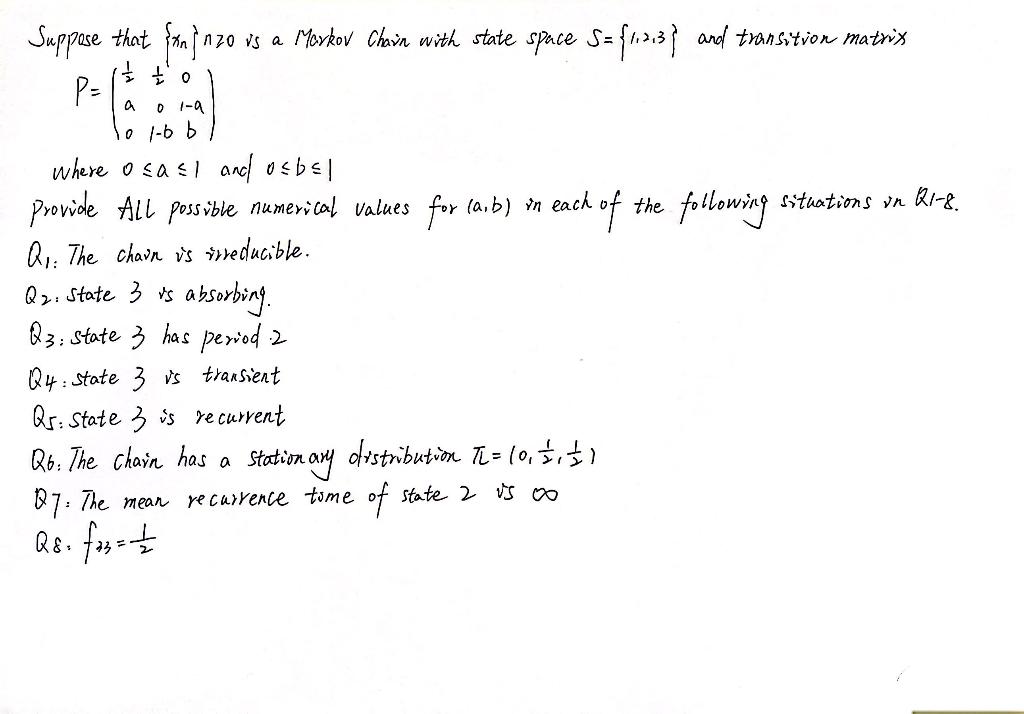 Suppose that {xn}n≥0 is a Markov Chain with state space S={1,2,3} and transition matrix
P= ( 1/2 1/2 0
a 0 1-a
0 1-b b )
where 0≤a≤1 and 0≤b≤1
Provide ALL possible numerical values for (a,b) in each of the following situations in Q1-8.
Q1: The chain is irreducible.
Q2: state 3 is absorbing.
Q3: state 3 has period 2
Q4: state 3 is transient
Q5: state 3 is recurrent
Q6: The chain has a stationary distribution π=(0,1/2,1/2)
Q7: The mean recurrence time of state 2 is ∞
Q8: f33=1/2